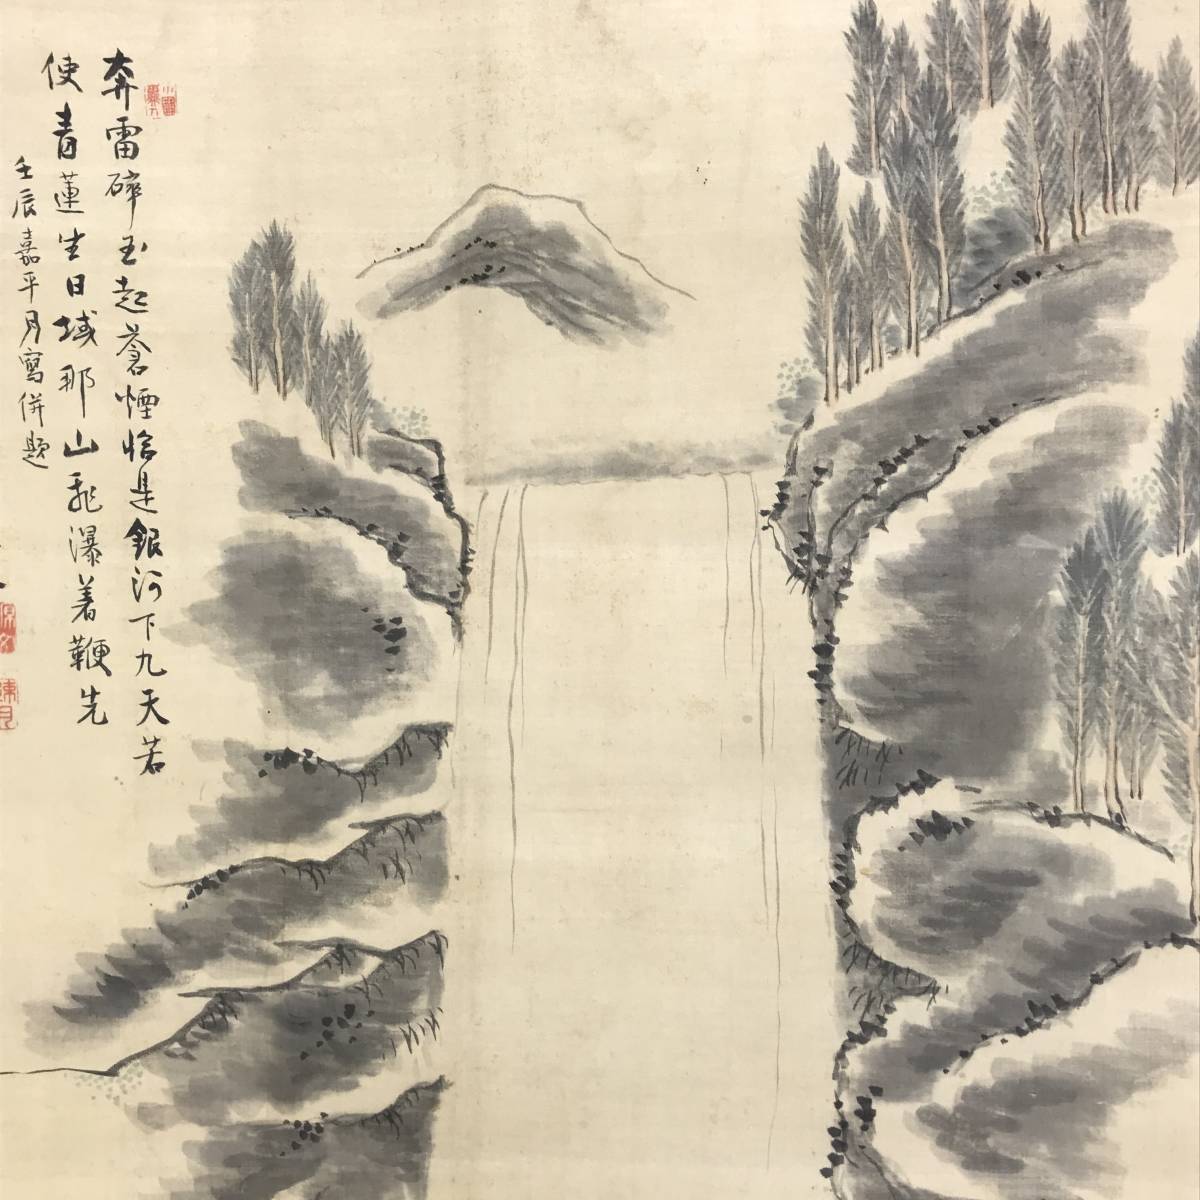 奔雷碎玉起蒼煙恰是銀河下九天若
使青蓮生日域那山飛瀑着鞭先
壬辰嘉平月寫併題